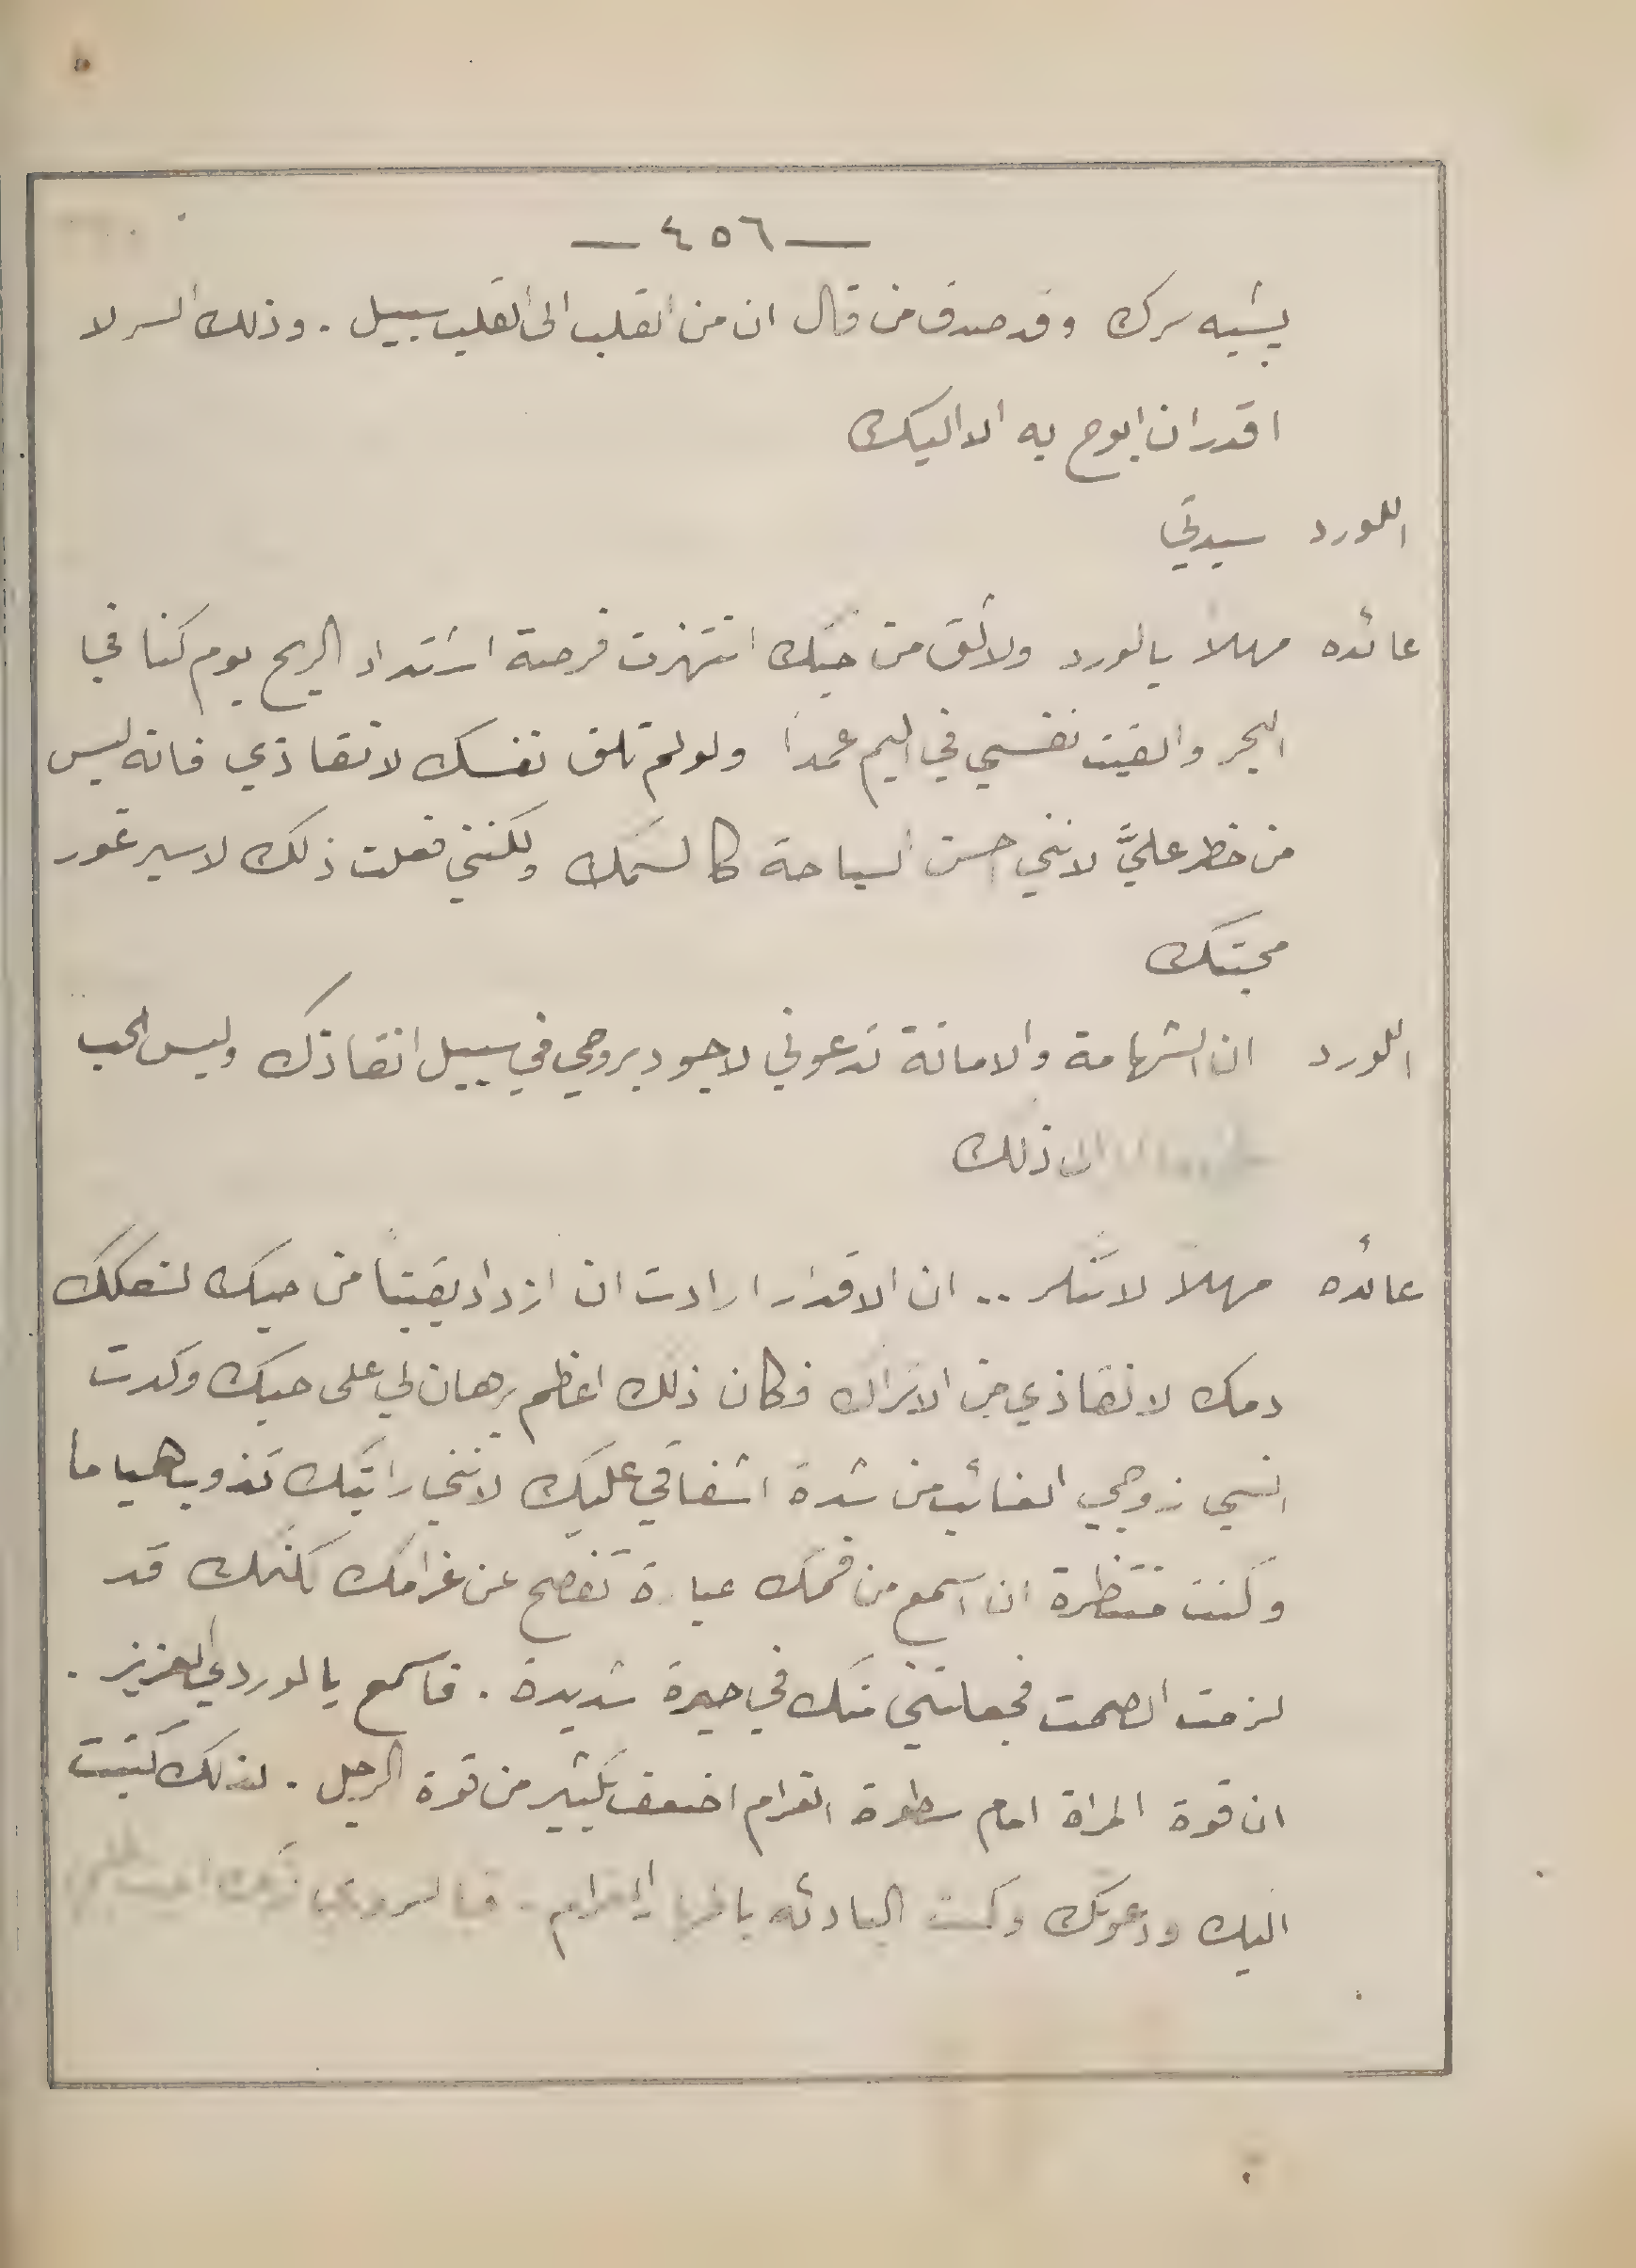 — ٤٥٦ —
يشبه سرك وقد صدق من قال ان من القلب الى القلب سبيل . وذلك السر لا
اقدر ان ابوح به الا اليك
اللورد سيدتي
عائده مهلا يالورد ولأثق من حبك انتهزت فرصة اشتداد الريح يوم كنا في
البحر والقيت نفسي في اليم عمداً ولو لم تلق نفسك لانقاذي فانه ليس
من خطر عليَّ لانني احسن السباحة كالسمك ولكنني فعلت ذلك لاسبر غور
محبتك
اللورد ان الشهامة والامانة تدعوني لاجود بروحي في سبيل انقاذك وليس الحب
ذلك
عائده مهلا لا تنكر .. ان الاقدار ارادت ان ازداد يقيناً من حبك لسفكك
دمك لانقاذي من الاتراك فكان ذلك اعظم برهان لي على حبك وكدت
انسى زوجي الغائب من شدة اشفاقي عليك لانني رايتك تذوب هياما
وكنت منتظرة ان اسمع من فمك عبارة تفصح عن غرامك لكنك قد
لزمت الصمت فجعلتني منك في حيرة شديدة . فاسمع يا لوردي العزيز .
ان قوة المراة امام سطوة الغرام اضعف بكثير من قوة الرجل . لذلك كتبت
اليك ودعوتك وكنت البادئه الغرام .